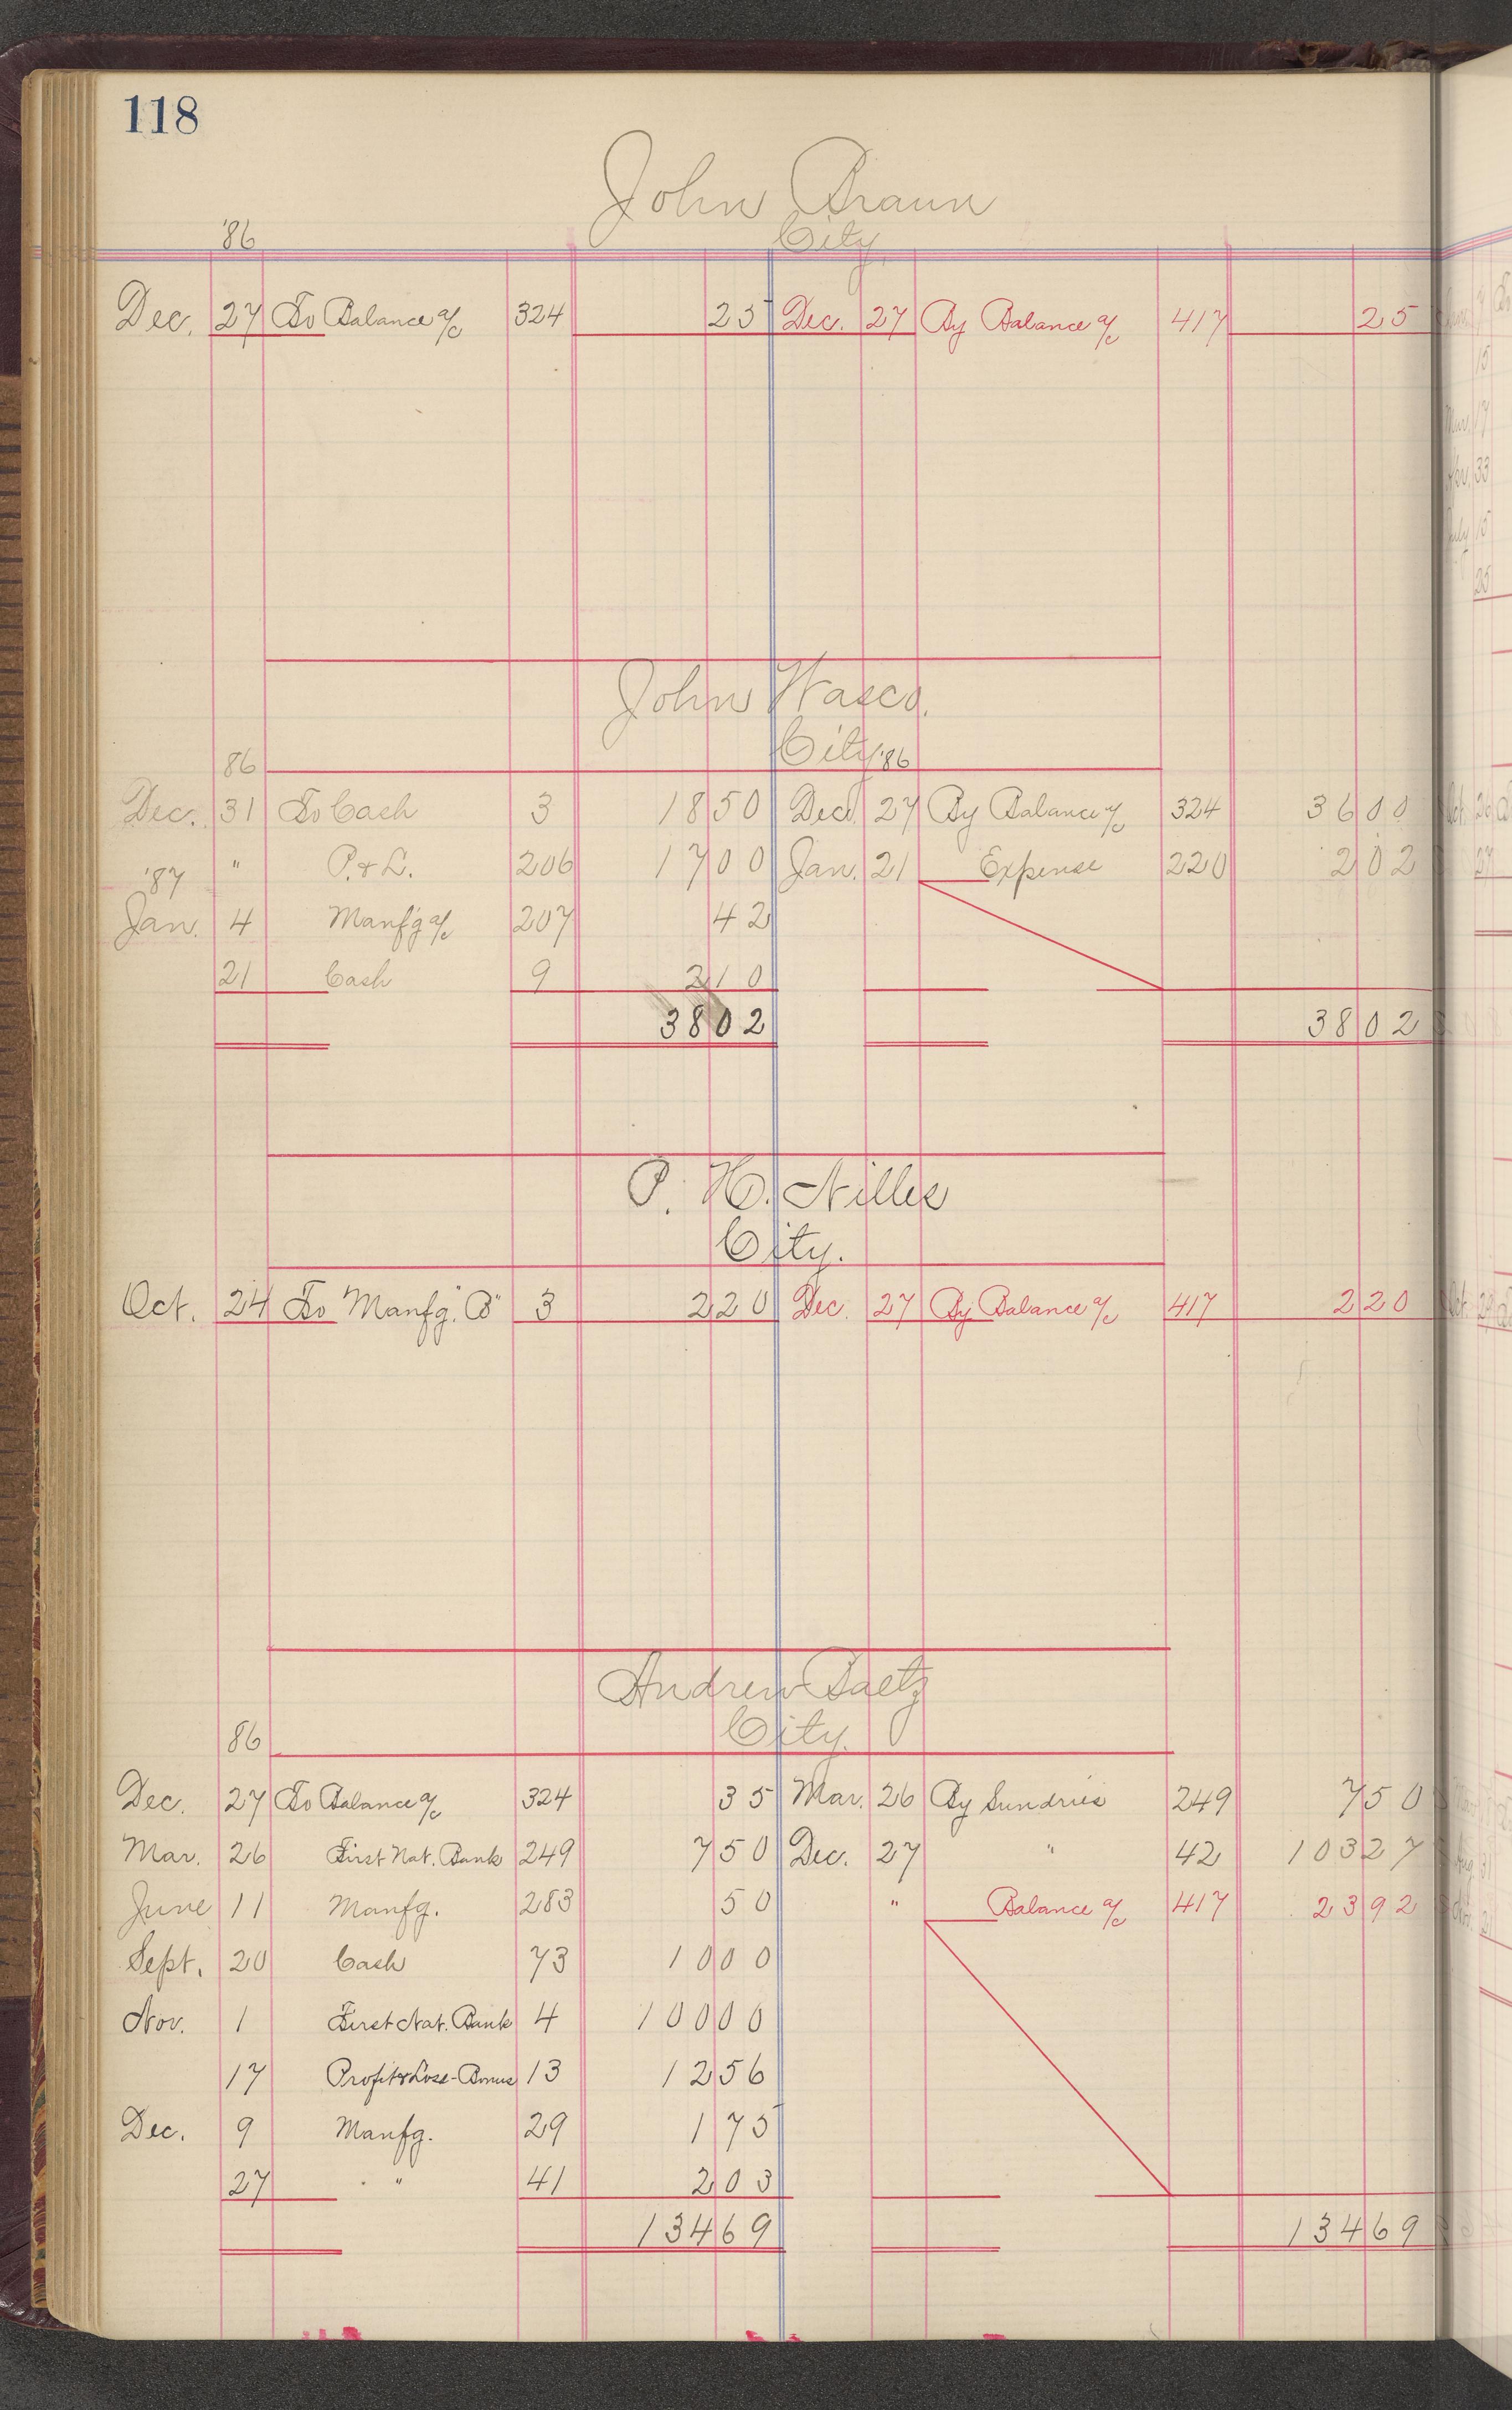 118
John Braun
City
'86
Dec. 27 To Balance a/c 324 25 Dec. 27 By Balance a/c 417 25
John Wasco.
City
86 '86
Dec. 31 To Cash 3 1850 Dec. 27 By Balance a/c 324 3600
" P. & L. 206 1700 Jan. 21 Expense 220 202
'87
Jan. 4 Manf'g a/c 207 42
21 Cash 9 210
3802 3802
P. H. Nilles
City.
Oct. 24 To "Manfg." "B" 3 220 Dec. 27 By Balance a/c 417 220
Andrew Baetz
City.
86
Dec. 27 To Balance a/c 324 35 Mar. 26 By Sundries 249 750
Mar. 26 First Nat. Bank 249 750 Dec. 27 " 42 10327
June 11 Manfg. 283 50 " Balance a/c 417 2392
Sept. 20 Cash 73 1000
Nov. 1 First Nat. Bank 4 10000
17 Profit & Loss - Bonus 13 1256
Dec. 9 Manfg. 29 175
27 " 41 203
13469 13469